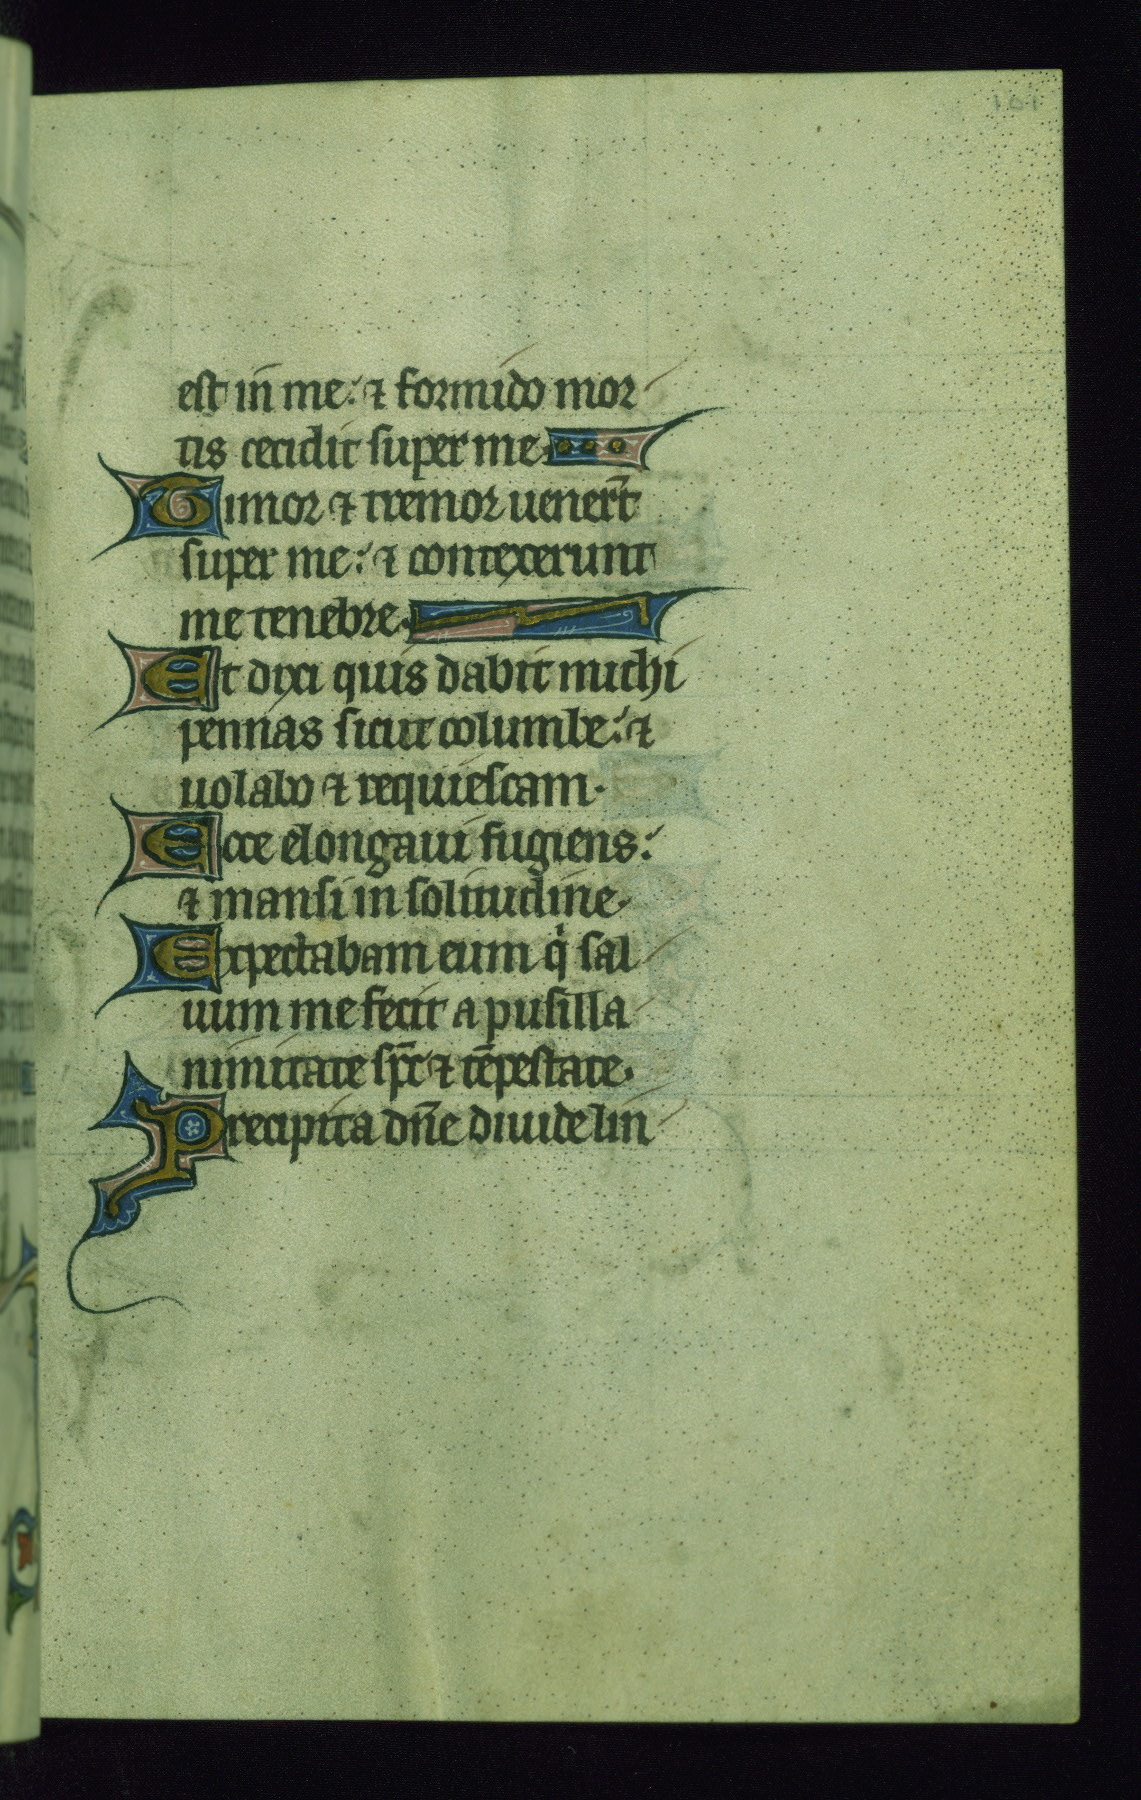 101
est in me: ⁊ formido mor
tis cecidit super me
Timor ⁊ tremor uener̄t
super me: ⁊ contexerunt
me tenebre.
Et dixi quis dabit michi
pennas sicut columbe: ⁊
uolabo ⁊ requiescam.
Ecce elongaui fugiens:
⁊ mansi in solitudine.
Expectabam eum qͥ sal
uum me fecit a pusilla
nimitate sp̄c ⁊ tēpestate.
Precipita dn̄e diuide lin